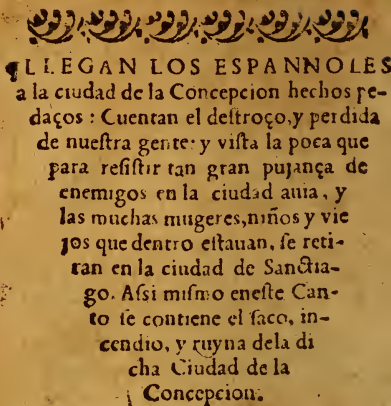 ¶LLEGAN LOS ESPANNOLES
a la ciudad de la Concepcion hechos pe-
daços : Cuentan el destroço, y perdida
de nuestra gente: y vista la poca que
para resistir tan gran pujança de
enemigos en la ciudad auia, y
las muchas mugeres, niños y vie
jos que dentro estauan, se reti-
ran en la ciudad de Sanctia-
go. Assi mismo eneste Can-
to se contiene el saco, in-
cendio, y ruyna dela di
cha Ciudad de la
Concepcion.